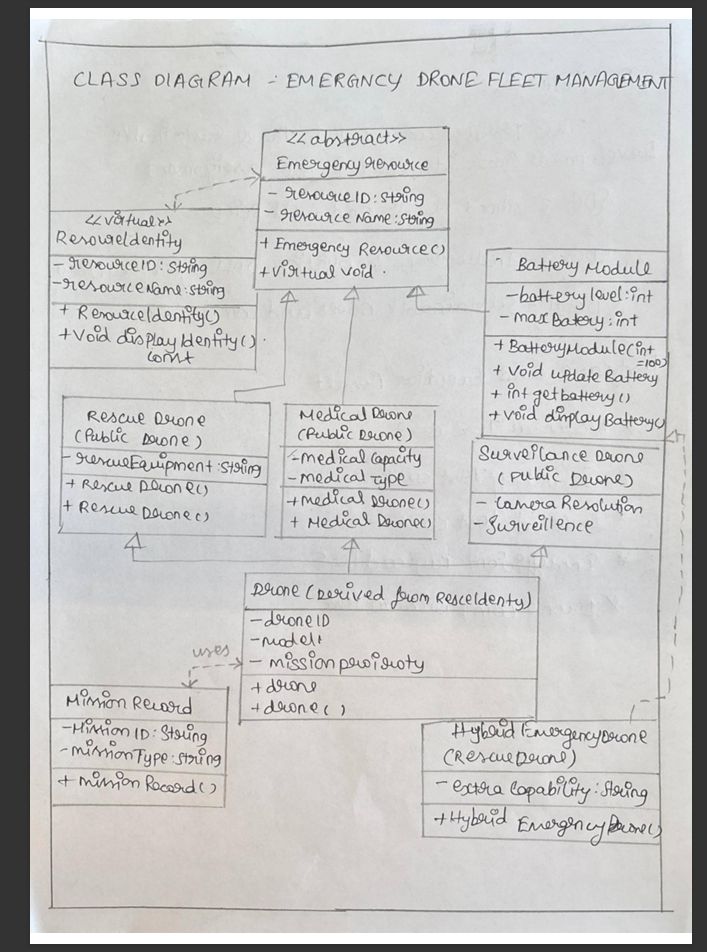 CLASS DIAGRAM - EMERGNCY DRONE FLEET MANAGEMENT
<<abstract>>
Emergency resource
- resource ID : String
- resource Name : String
+ Emergency Resource()
+ Virtual void .
<<virtual>>
ResoureIdentity
- resource ID : String
- resource Name : String
+ ResourceIdentity()
+ Void display Identity() .
const
- Battery Module
- battery level : int
- max Batery : int
+ BatteryModule(int
=100)
+ void update Battery
+ int getbattery()
+ void displayBattery()
Rescue Drone
(Public Drone)
- rescueEquipment : String
+ Rescue Drone()
+ Rescue Drone()
Medical Drone
(Public Drone)
- medical Capacity
- medical Type
+ medical Drone()
+ Medical Drone()
Surveilance Drone
(Public Drone)
- Camera Resolution
- Surveillence
Drone (Derived from ResceIdenty)
- droneID
- model
- mission proiroty
+ drone
+ drone()
uses
Mission Record
- Mission ID : String
- mission Type : String
+ mission Record()
Hybrid EmergencyDrone
(RescueDrone)
- extra Capability : String
+ Hybrid EmergencyDrone()